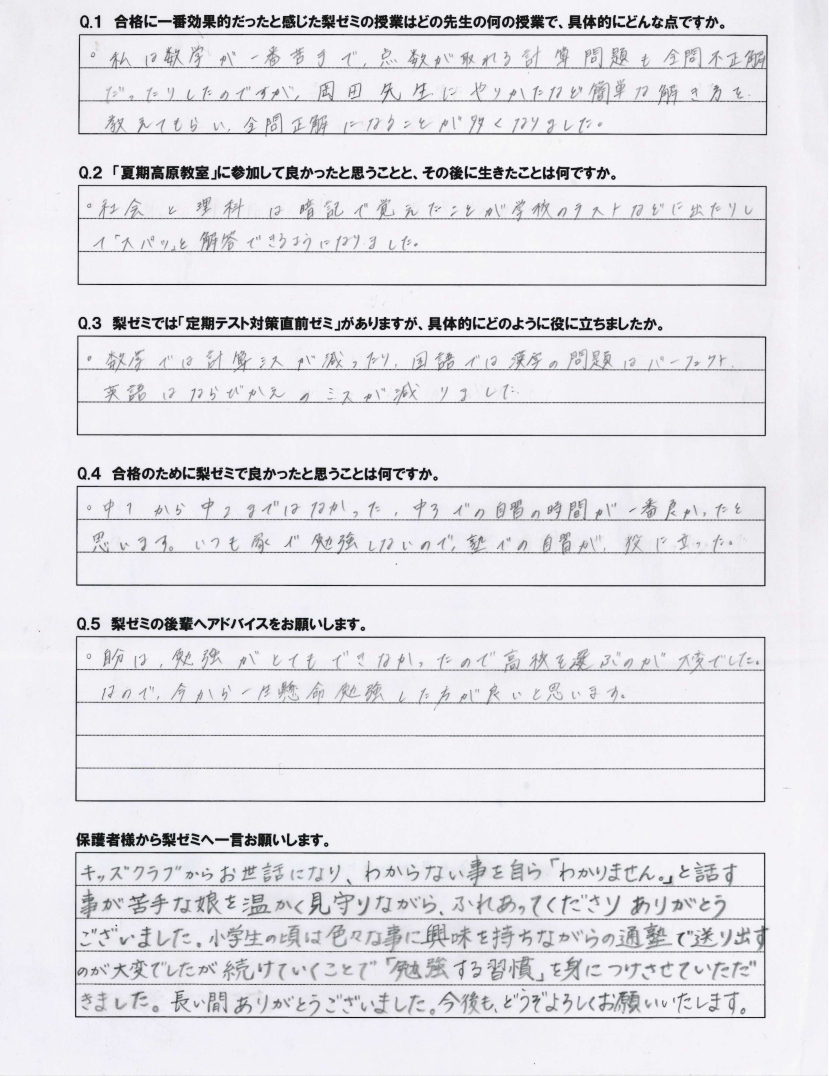 Q.1 合格に一番効果的だったと感じた梨ゼミの授業はどの先生の何の授業で、具体的にどんな点ですか。
。私は数学が一番苦手で、点数が取れる計算問題も全問不正解
だったりしたのですが、岡田先生にやりかたなど簡単な解き方を
教えてもらい、全問正解になることが多くなりました。
Q.2 「夏期高原教室」に参加して良かったと思うことと、その後に生きたことは何ですか。
。社会と理科は暗記で覚えたことが学校のテストなどに出たりし
て「スパッ」と解答できるようになりました。
Q.3 梨ゼミでは「定期テスト対策直前ゼミ」がありますが、具体的にどのように役に立ちましたか。
。数学では計算ミスが減ったり、国語では漢字の問題はパーフェクト、
英語はならびかえのミスが減りました
Q.4 合格のために梨ゼミで良かったと思うことは何ですか。
。中1から中2まではなかった、中3での自習の時間が一番良かったと
思います。いつも家で勉強しないので、塾での自習が、役に立った。
Q.5 梨ゼミの後輩へアドバイスをお願いします。
。自分は、勉強がとてもできなかったので高校を選ぶのが大変でした。
なので、今から一生懸命勉強した方が良いと思います。
保護者様から梨ゼミへ一言お願いします。
キッズクラブからお世話になり、わからない事を自ら「わかりません。」と話す
事が苦手な娘を温かく見守りながら、ふれあってくださり ありがとう
ございました。小学生の頃は色々な事に興味を持ちながらの通塾で送り出す
のが大変でしたが続けていくことで「勉強する習慣」を身につけさせていただ
きました。長い間ありがとうございました。今後も、どうぞよろしくお願いいたします。